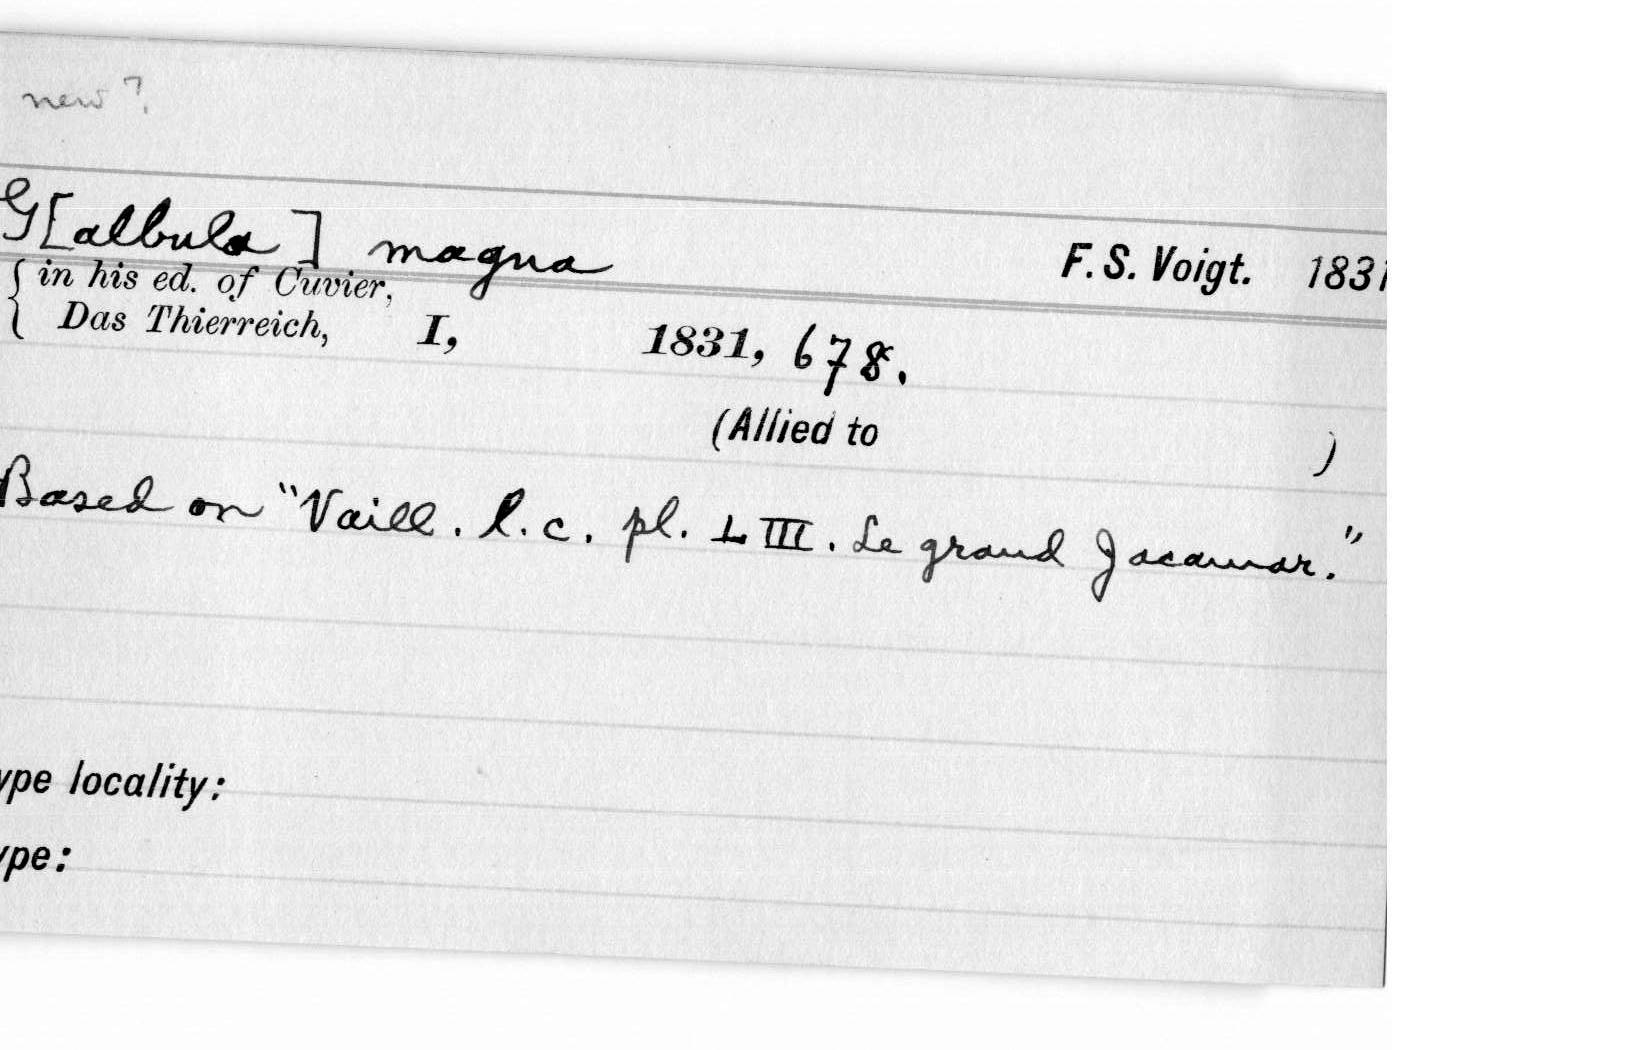 new?
G[albula] magna F. S. Voigt. 1831
{ in his ed. of Cuvier,
Das Thierreich, I, 1831, 678.
(Allied to )
Based on "Vaill. l.c. pl. LIII. Le grand Jacamar."
ype locality:
ype: